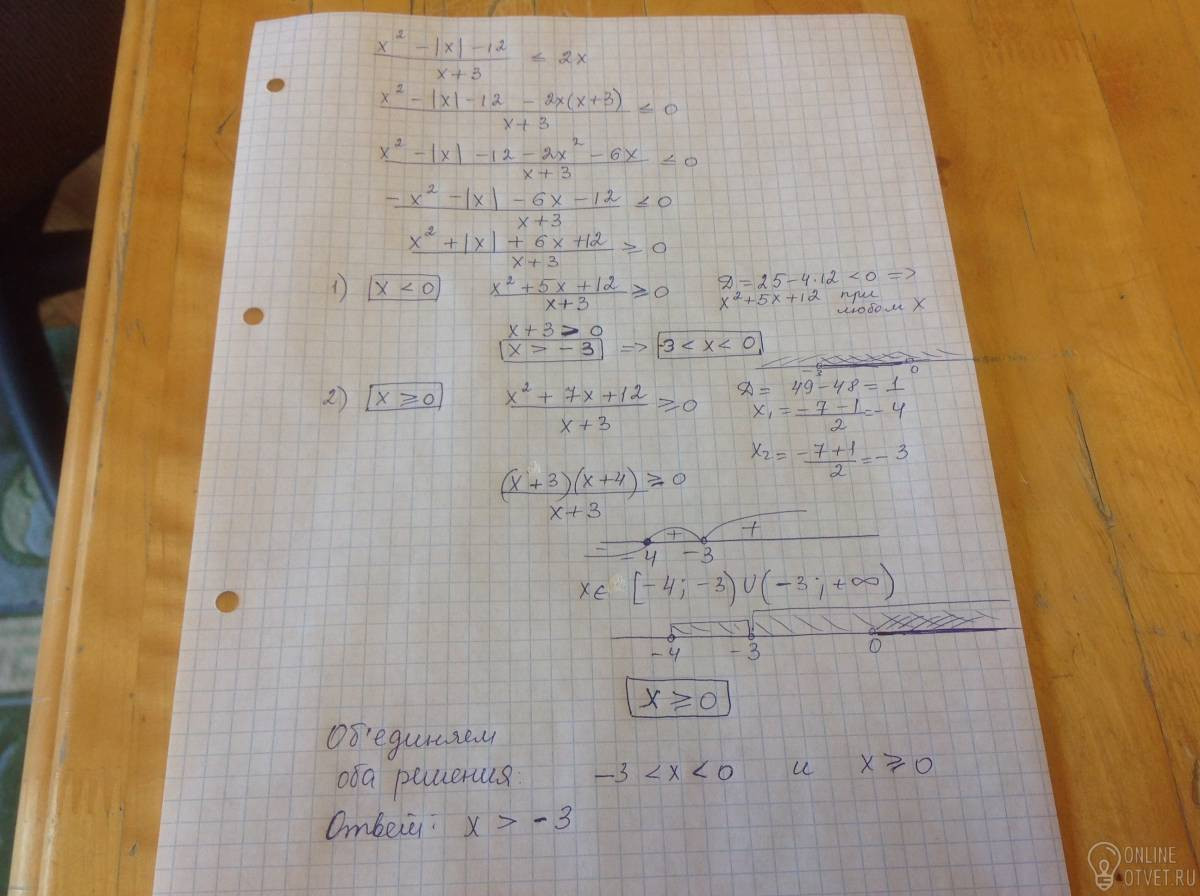 x² - |x| - 12 / x+3 ≤ 2x
x² - |x| - 12 - 2x(x+3) / x+3 ≤ 0
x² - |x| - 12 - 2x² - 6x / x+3 ≤ 0
-x² - |x| - 6x - 12 / x+3 ≤ 0
x² + |x| + 6x + 12 / x+3 ≥ 0
1) x < 0 x² + 5x + 12 / x+3 ≥ 0 D = 25 - 4·12 < 0 =>
x² + 5x + 12 при
любом x
x + 3 > 0
x > -3 => -3 < x < 0
-3 0
2) x ≥ 0 x² + 7x + 12 / x+3 ≥ 0 D = 49 - 48 = 1
x₁ = -7-1 / 2 = -4
x₂ = -7+1 / 2 = -3
(x+3)(x+4) / x+3 ≥ 0
- + +
-4 -3
x ∈ [-4; -3) ∪ (-3; +∞)
-4 -3 0
x ≥ 0
Об'единяем
оба решения: -3 < x < 0 и x ≥ 0
Ответ: x > -3
ONLINE
OTVET.RU